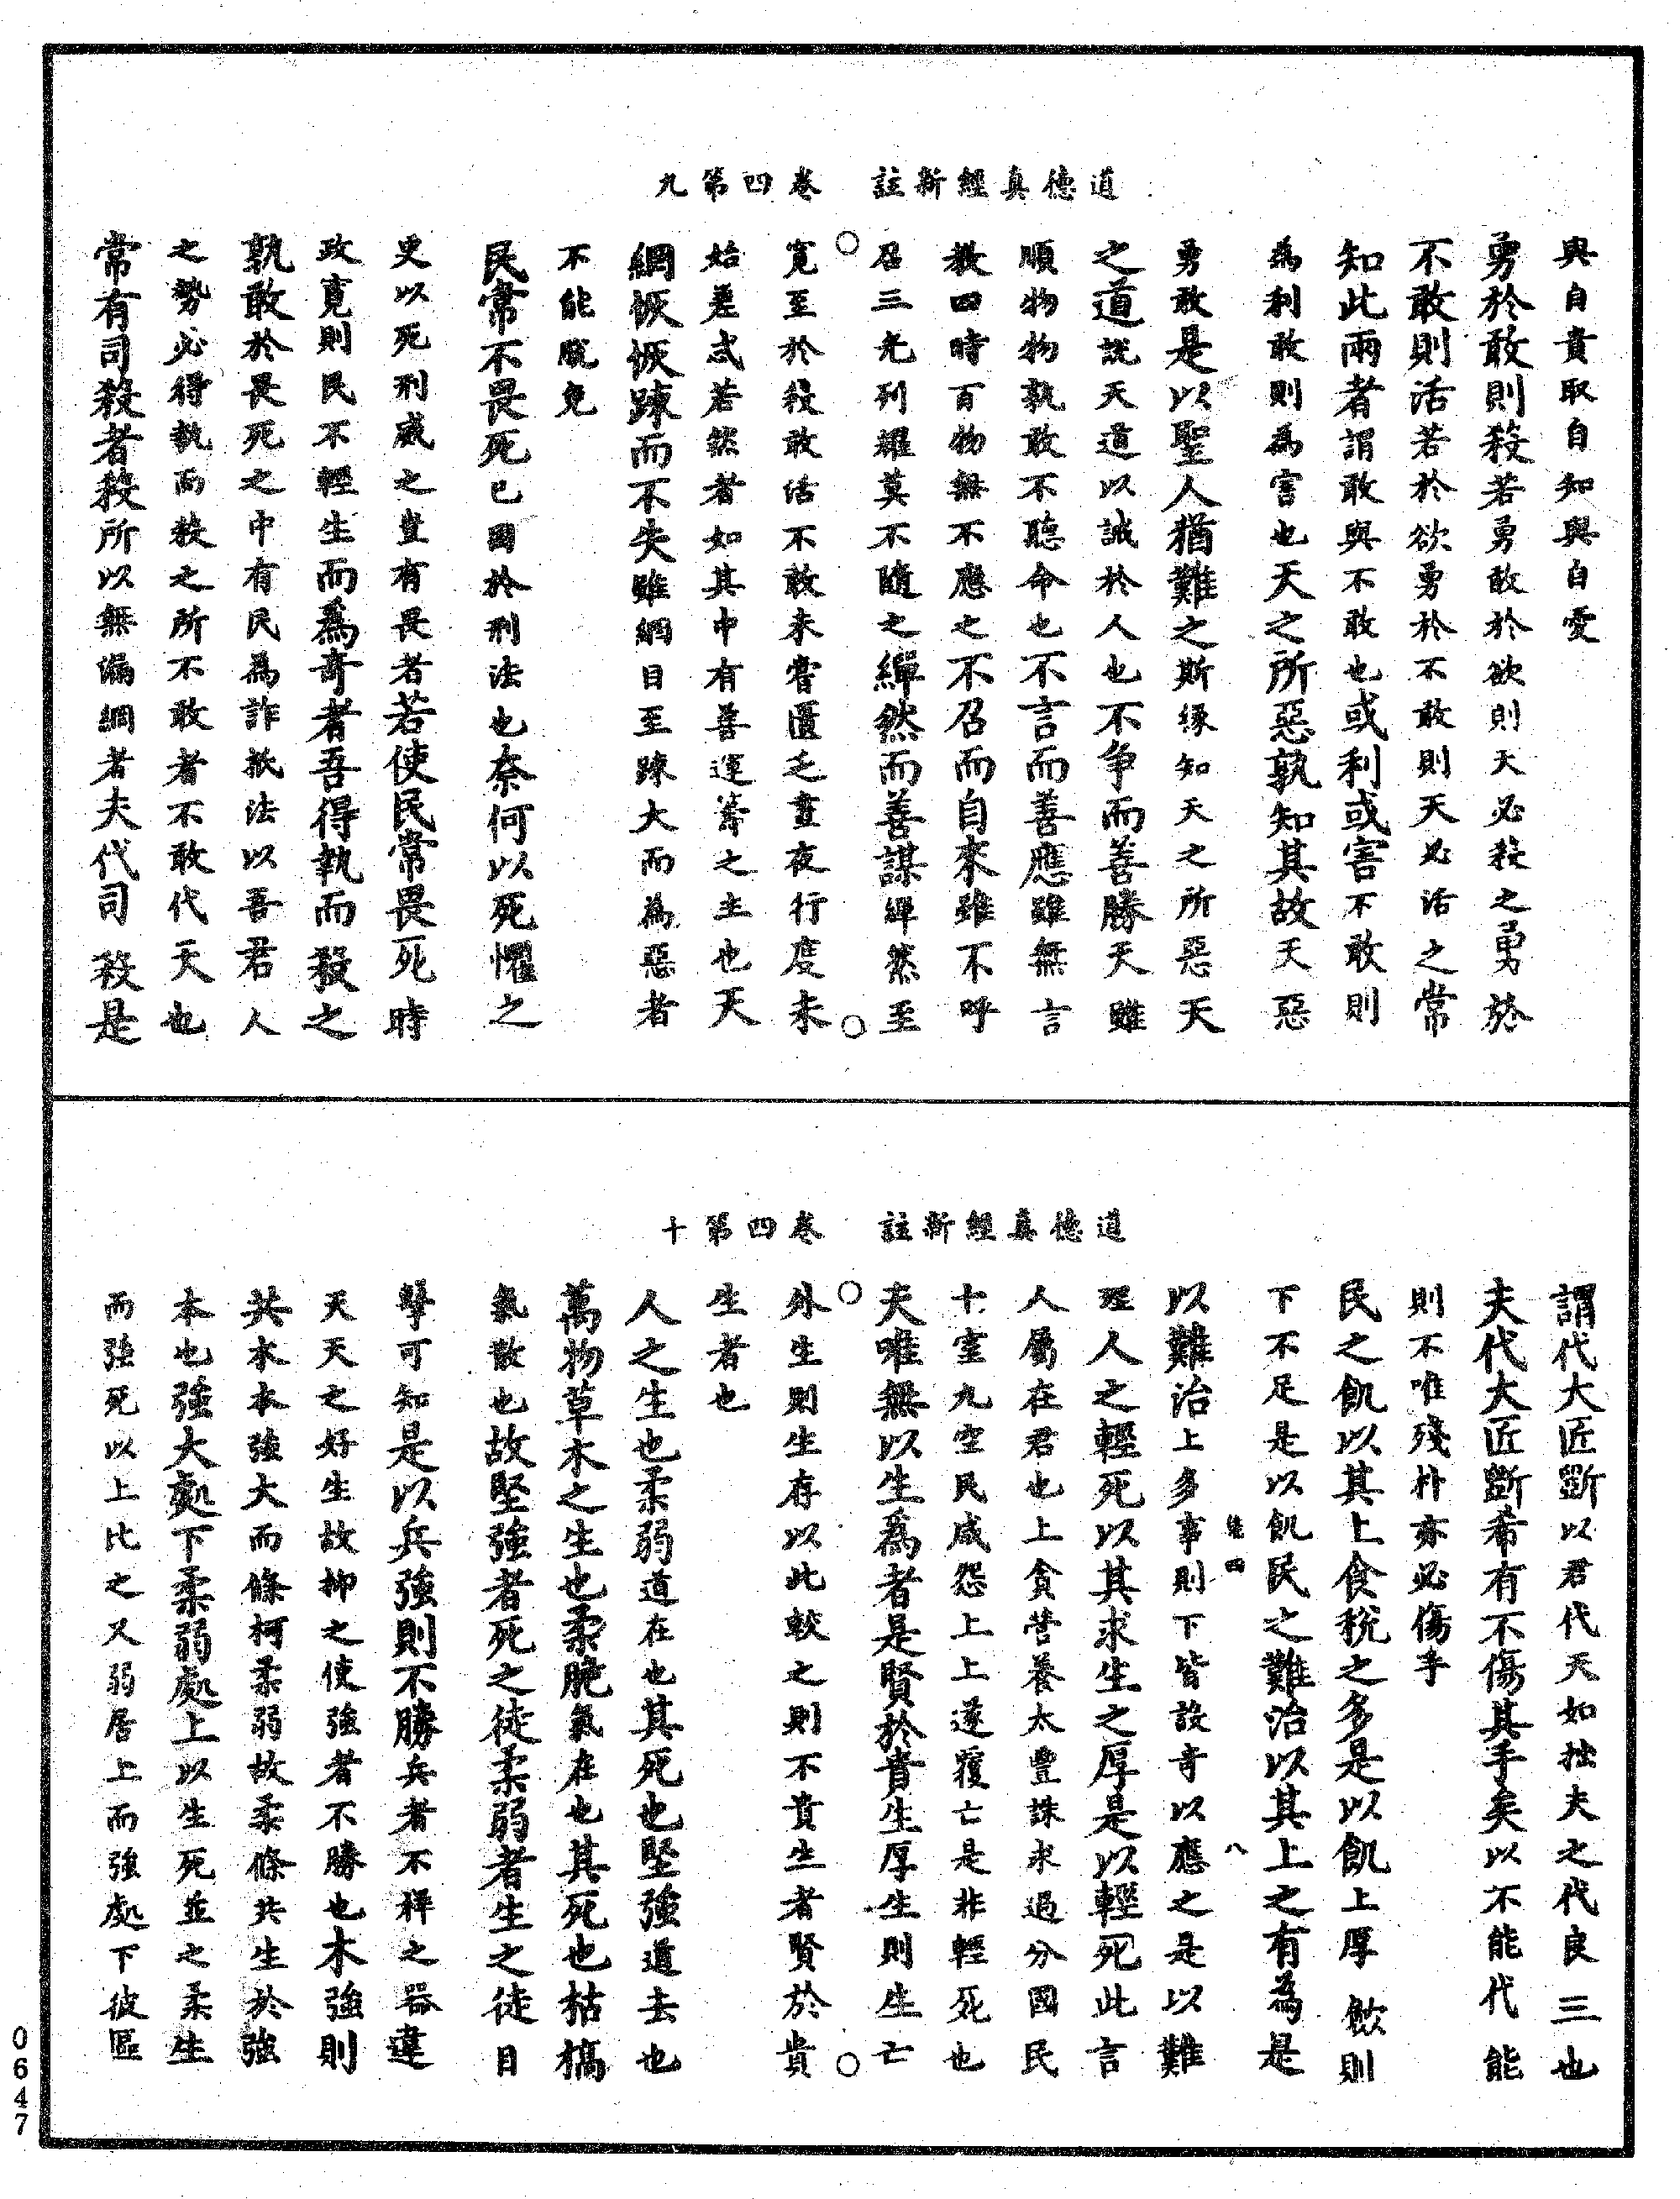 道德真經新註　卷四第九
與自貴取自知與自愛
勇於敢則殺若勇敢於欲則天必殺之勇於
不敢則活若於欲勇於不敢則天必活之常
知此兩者謂敢與不敢也或利或害不敢則
為利敢則為害也天之所惡孰知其故天惡
勇敢是以聖人猶難之斯緣知天之所惡天
之道說天道以誡於人也不争而善勝天雖
順物物孰敢不聽命也不言而善應雖無言
教四時百物無不應之不召而自來雖不呼
召三光列耀莫不隨之繟然而善謀繟然至
寬至於殺敢活不敢未嘗匱乏晝夜行度未
始差忒若然者如其中有善運籌之主也天
網恢恢踈而不失雖網目至踈大而為惡者
不能脫免
民常不畏死已困於刑法也奈何以死懼之
史以死刑威之豈有畏者若使民常畏死時
政寛則民不輕生而爲奇者吾得執而殺之
孰敢於畏死之中有民為詐欺法以吾君人
之勢必得執而殺之所不敢者不敢代天也
常有司殺者殺所以無漏網者夫代司殺是
道德真經新註　卷四第十
謂代大匠斲以君代天如拙夫之代良工也
夫代大匠斲希有不傷其手矣以不能代能
則不唯殘朴亦必傷手
民之飢以其上食稅之多是以飢上厚斂則
下不足是以飢民之難治以其上之有為是
以難治上多事則下皆設奇以應之是以難
理人之輕死以其求生之厚是以輕死此言
人屬在君也上貪營養太豊誅求過分國民
十室九空民咸怨上上遂覆亡是非輕死也
夫唯無以生爲者是賢於貴生厚生則生亡
外生則生存以此較之則不貴生者賢於貴
生者也
人之生也柔弱道在也其死也堅強道去也
萬物草木之生也柔脆氣在也其死也枯槁
氣散也故堅強者死之徒柔弱者生之徒目
擊可知是以兵強則不勝兵者不祥之器違
天天之好生故抑之使強者不勝也木強則
共木本強大而條柯柔弱故柔條共生於強
本也強大處下柔弱處上以生死並之柔生
而強死以上比之又弱居上而強處下彼區
0647